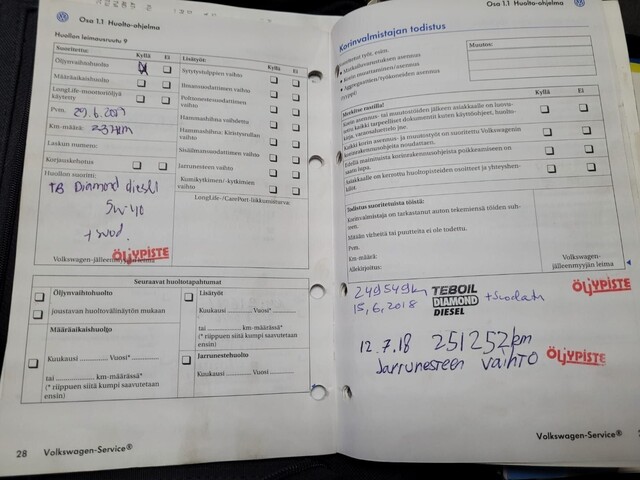 Osa 1.1 Huolto-ohjelma
Huollon leimausruutu 9
Suoritettu:
Kyllä Ei
Öljynvaihtohuolto
Määräaikaishuolto
LongLife-moottoriöljyä
käytetty
Pvm. 29.6.2017
Km-määrä: 237tkm
Laskun numero:
Korjauskehotus
Huollon suoritti:
TB Diamond diesel
5w40
+ suod.
ÖLJYPISTE
Volkswagen-jälleenmyyjän leima
Lisätyöt:
Kyllä Ei
Sytytystulppien vaihto
Ilmansuodattimen vaihto
Polttonestesuodattimen
vaihto
Hammashihna vaihdettu
Hammashihna: Kiristysrullan
vaihto
Sisäilmansuodattimen vaihto
Jarrunesteen vaihto
Kumikytkimen/-kytkimien
vaihto
LongLife -/CarePort-liikkumisturva:
Seuraavat huoltotapahtumat
Öljynvaihtohuolto
joustavan huoltovälinäytön mukaan
Määräaikaishuolto
Kuukausi ............ Vuosi* ............
tai ............ km-määrässä*
(* riippuen siitä kumpi saavutetaan
ensin)
Lisätyöt
Kuukausi ............ Vuosi* ............
tai ............ km-määrässä*
(* riippuen siitä kumpi saavutetaan
ensin)
Jarrunestehuolto
Kuukausi ............ Vuosi ............
28 Volkswagen-Service®
Osa 1.1 Huolto-ohjelma
Korinvalmistajan todistus
Suoritetut työt, esim.
• Matkailuvarustuksen asennus
• Korin muuttaminen/asennus
• Aggregaattien/työkoneiden asennus
(tyyppi)
Muutos:
Merkitse rastilla!
Kyllä Ei
Korin asennus- tai muutostöiden jälkeen asiakkaalle on luovu-
tettu kaikki tarpeelliset dokumentit kuten käyttöohjeet, huolto-
kirja, varaosaluettelo jne.
Kaikki korin asennus- ja muutostyöt on suoritettu Volkswagenin
korinrakennusohjeita noudattaen.
Edellä mainituista korinrakennusohjeista poikkeamiseen on
saatu lupa.
Asiakkaalle on kerrottu huoltopisteiden osoitteet ja yhteyshen-
Todistus suoritetuista töistä:
Korinvalmistaja on tarkastanut auton tekemiensä töiden suh-
teen.
Mitään virheitä tai puutteita ei ole todettu.
Pvm.
Km-määrä:
Allekirjoitus:
Volkswagen-
jälleenmyyjän leima
249549km
15,6,2018
TEBOIL
DIAMOND
DIESEL
+ Suodatin
ÖLJYPISTE
12.7.18 251252km
Jarrunesteen vaihto
ÖLJYPISTE
Volkswagen-Service®